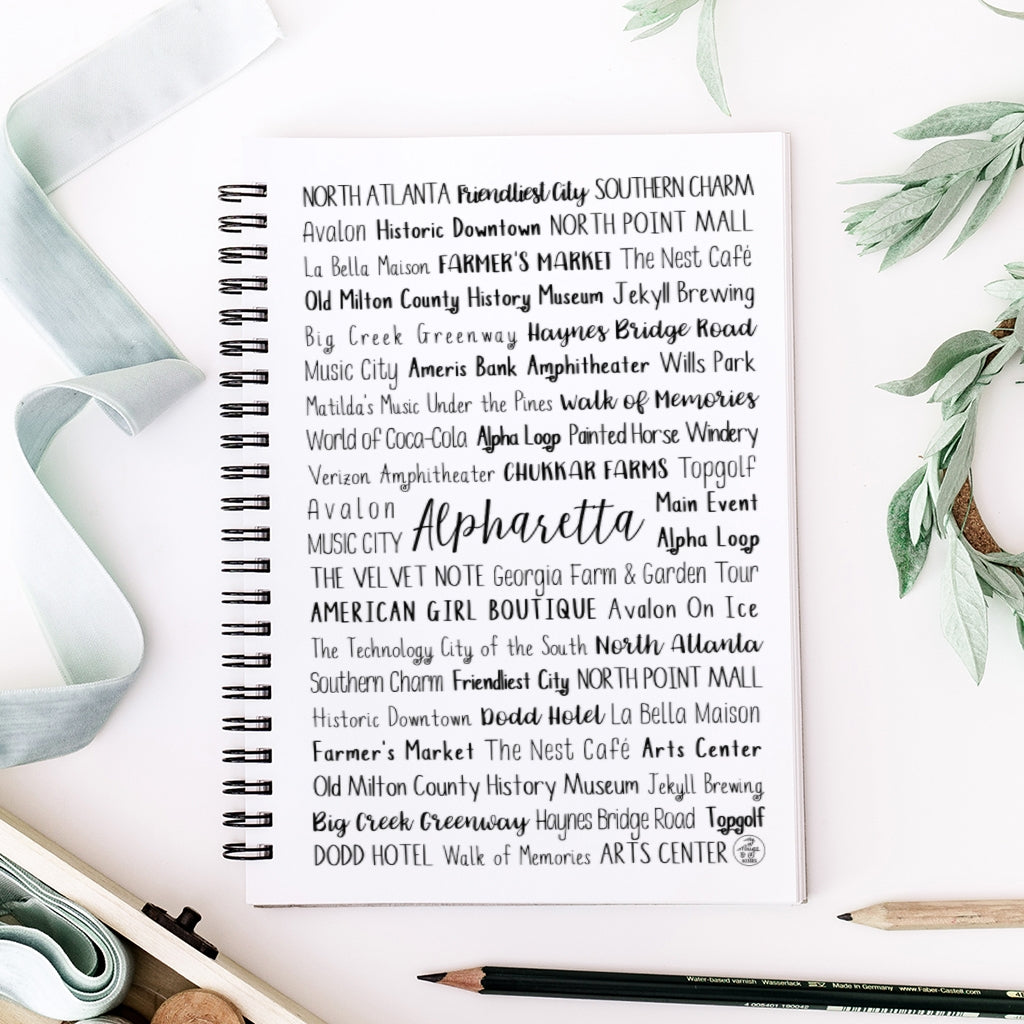 NORTH ATLANTA Friendliest City SOUTHERN CHARM
Avalon Historic Downtown NORTH POINT MALL
La Bella Maison FARMER'S MARKET The Nest Café
Old Milton County History Museum Jekyll Brewing
Big Creek Greenway Haynes Bridge Road
Music City Ameris Bank Amphitheater Wills Park
Matilda's Music Under the Pines Walk of Memories
World of Coca-Cola Alpha Loop Painted Horse Windery
Verizon Amphitheater CHUKKAR FARMS Topgolf
Avalon
MUSIC CITY
Alpharetta
Main Event
Alpha Loop
THE VELVET NOTE Georgia Farm & Garden Tour
AMERICAN GIRL BOUTIQUE Avalon On Ice
The Technology City of the South North Atlanta
Southern Charm Friendliest City NORTH POINT MALL
Historic Downtown Dodd Hotel La Bella Maison
Farmer's Market The Nest Café Arts Center
Old Milton County History Museum Jekyll Brewing
Big Creek Greenway Haynes Bridge Road Topgolf
DODD HOTEL Walk of Memories ARTS CENTER
Water-based varnish Wasserlack Made in Germany www.Faber-Castell.com
4 005401 190042